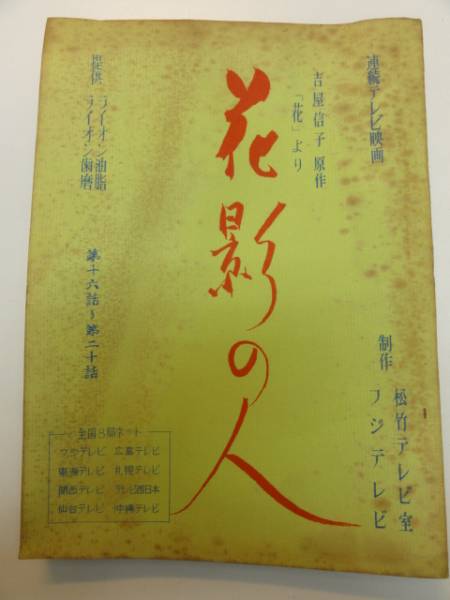 連続テレビ映画
吉屋信子 原作
「花」より
花影の人
提供 ライオン油脂
ライオン歯磨
第十六話〜第二十話
制作 松竹テレビ室
フジテレビ
全国8局ネット
フジテレビ 広島テレビ
東海テレビ 札幌テレビ
関西テレビ テレビ西日本
仙台テレビ 沖縄テレビ